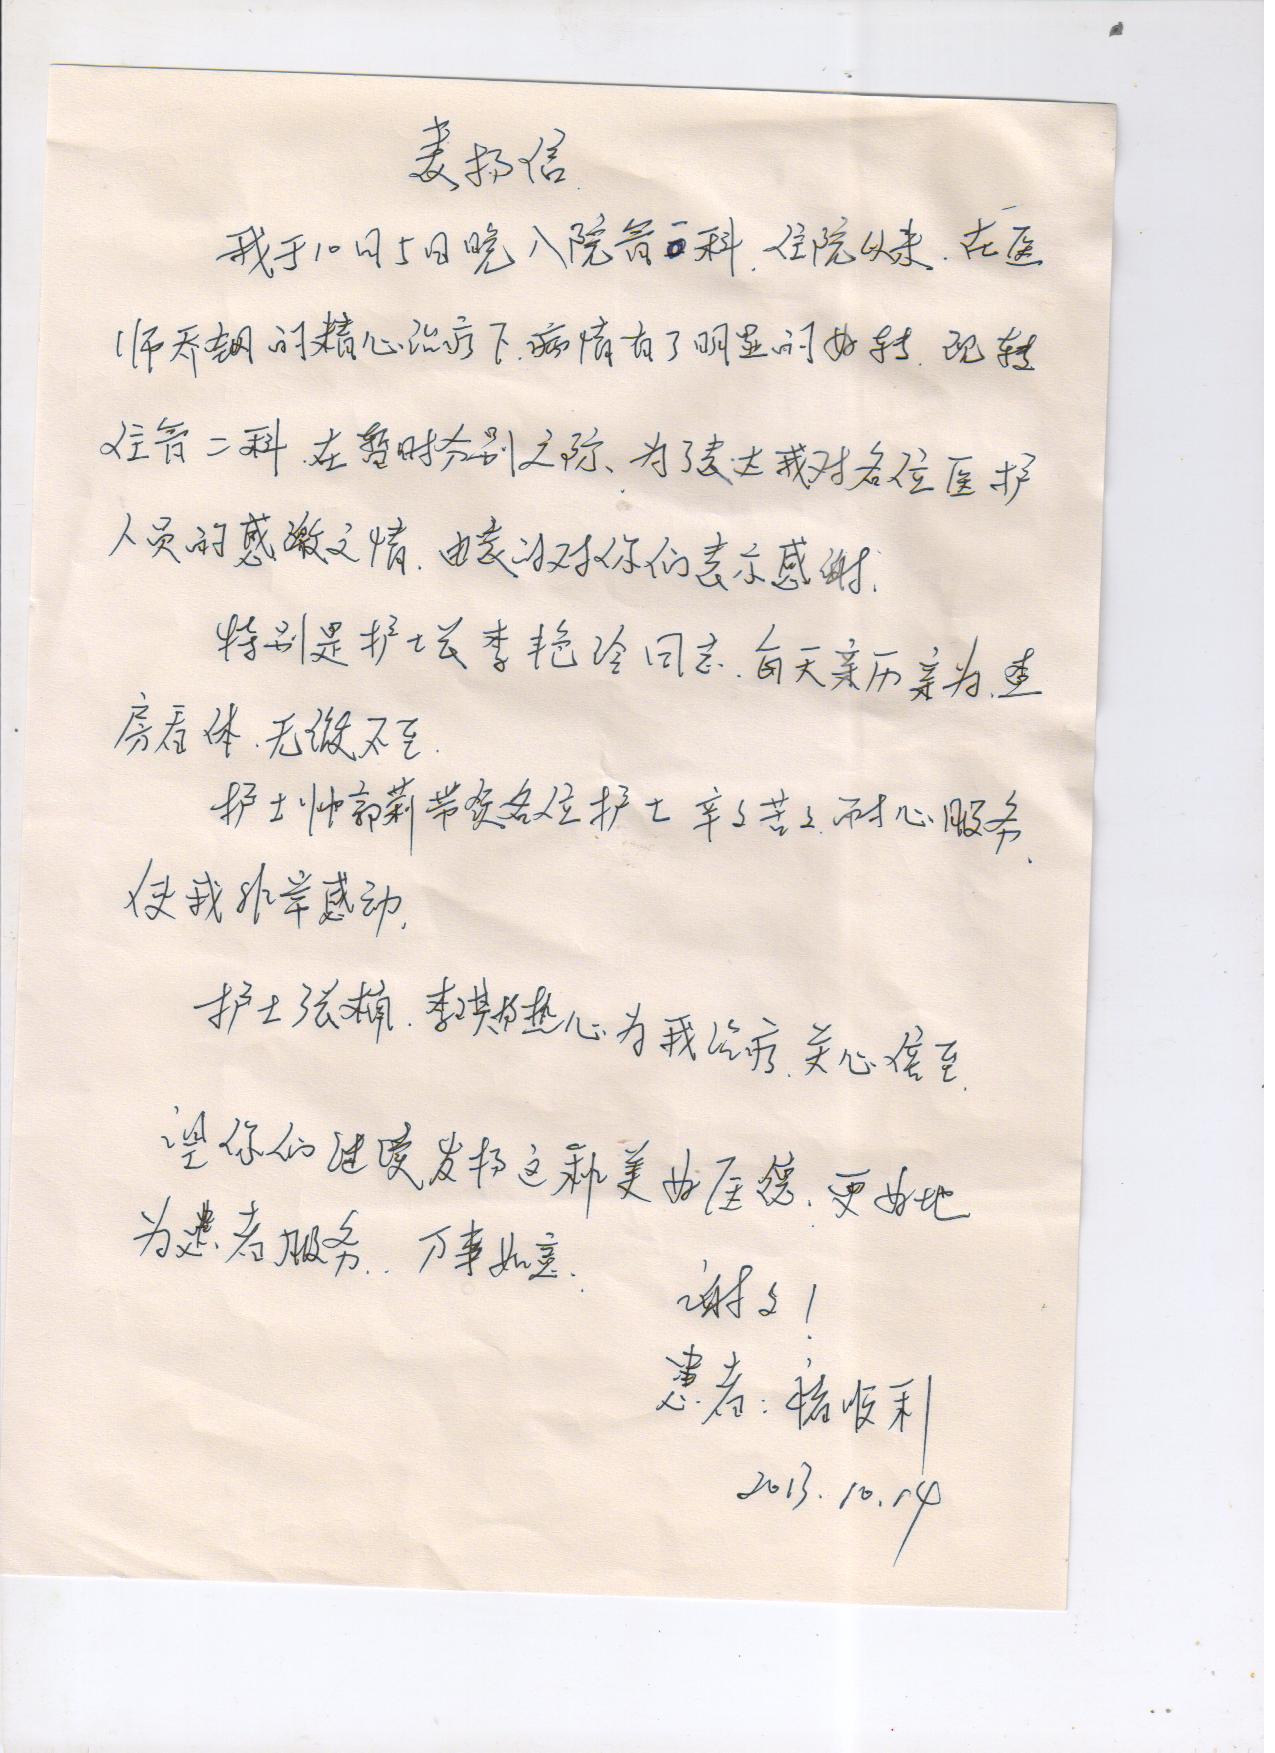 表扬信
我于10月5日晚入院骨一科.住院以来.在医
师乔的精心治疗下.病情有了明显的好转.现转
住骨二科.在暂时分别之际、为了表达我对各位医护
人员的感激之情.由衷的对你们表示感谢.
特别是护士长李艳玲同志.每天亲历亲为.查
房看体.无微不至.
护士帅郭莉带领各位护士辛々苦々.耐心服务.
使我非常感动.
护士张楠.李琪热心为我治疗.关心倍至.
望你们继续发扬这种美好医德.更好地
为患者服务..万事如意.
谢々!
患者:顺利
2013.10.14